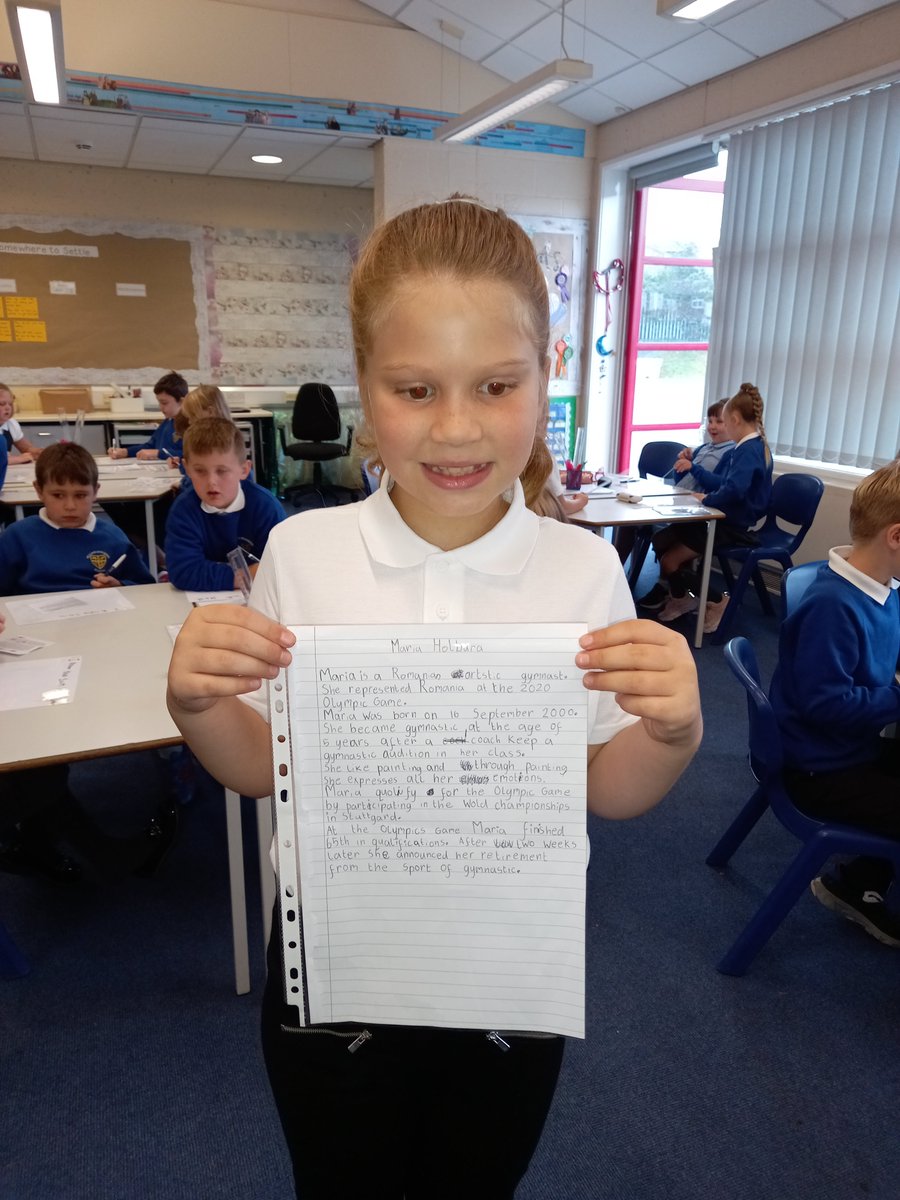 Somewhere to Settle
Maria Holbura
Maria is a Romanian artstic gymnast.
She represented Romania at the 2020
Olympic Game.
Maria was born on 16 September 2000.
She became gymnastic at the age of
5 years after a coach keep a
gymnastic audition in her class.
She like painting and through painting
she expresses all her emotions.
Maria qualify for the Olympic Game
by participating in the Wold championships
in Stuttgard.
At the Olympics Game Maria finished
65th in qualifications. After two weeks
later she announced her retirement
from the sport of gymnastic.